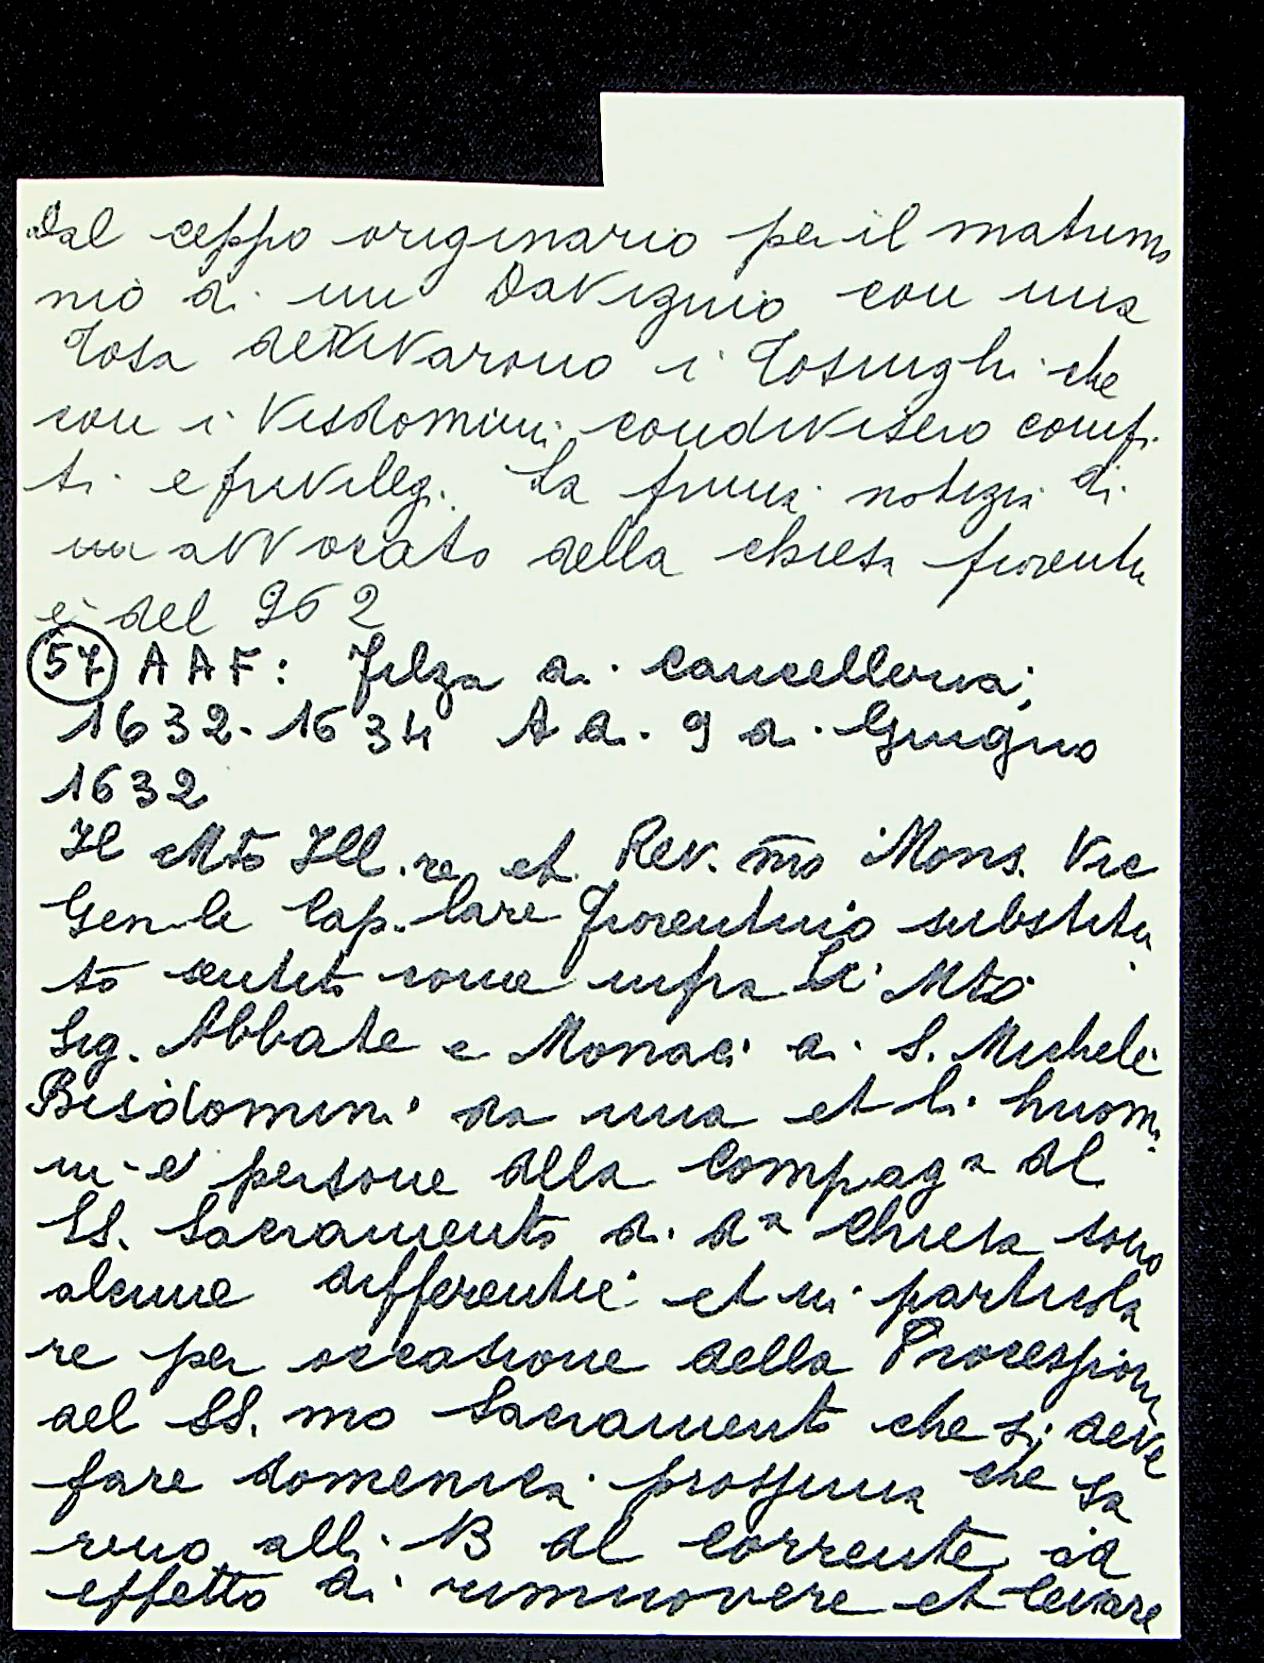 Dal ceppo originario per il matrimo
nio di un Davizzio con una
Tosa derivarono i Tosinghi che
con i Visdomini condivisero compi
ti e privilegi. La prima notizia di
un avvocato della chiesa fiorentin
è del 962
57 AAF: Filza di cancelleria;
1632-1634 A di. 9 di. Giugno
1632
Il Mto Ill.re et Rev.mo Mons. Vic
Gen-le Cap.lare fiorentino substitu
to sentito come infra li Mto
Sig. Abbate e Monaci di S. Michele
Bisdomini da una et li huomi
ni e persone della Compag.a del
SS. Sacramento di d.a Chiesa sono
alcune differentie et in particola
re per occasione della Processione
del SS.mo Sacramento che si deve
fare domenica prossima che sa
remo alli 13 del corrente ad
effetto di rimuovere et levare